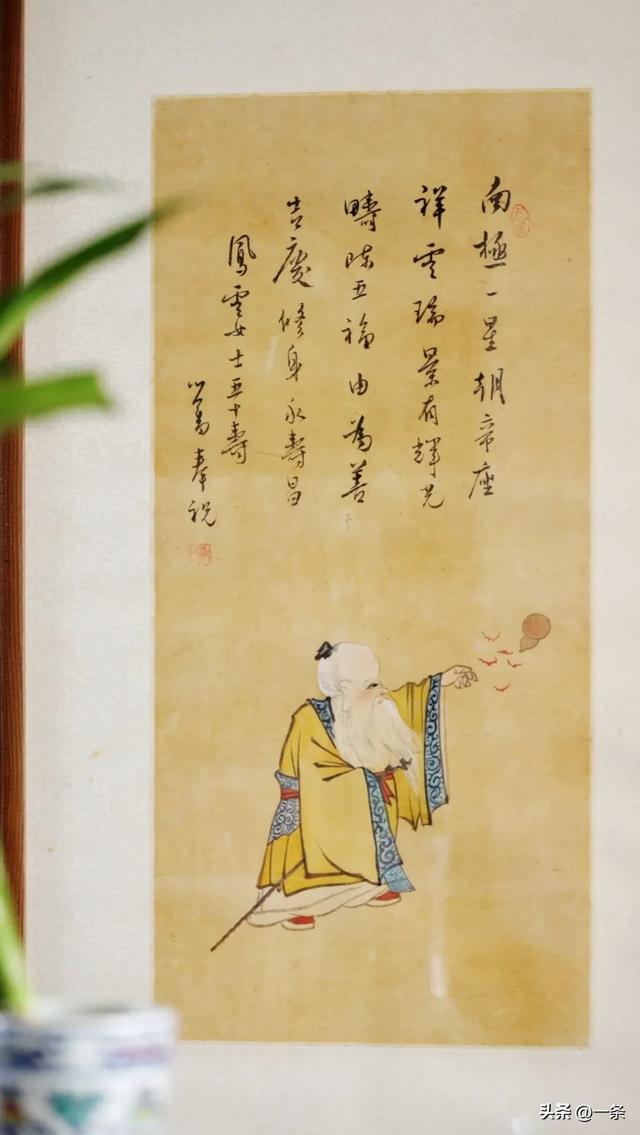 南極一星朝帝座
祥雲瑞景有輝光
疇陳五福由為善
吉慶修身永壽昌
鳳雲女士五十壽
心畬奉祝
头条 @一条